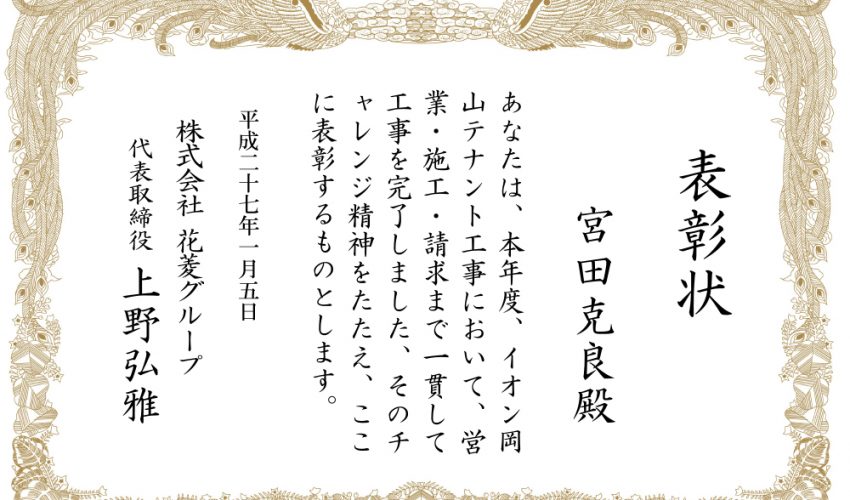 表彰状
宮田克良殿
あなたは、本年度、イオン岡
山テナント工事において、営
業・施工・請求まで一貫して
工事を完了しました、そのチ
ャレンジ精神をたたえ、ここ
に表彰するものとします。
平成二十七年一月五日
株式会社 花菱グループ
代表取締役 上野弘雅